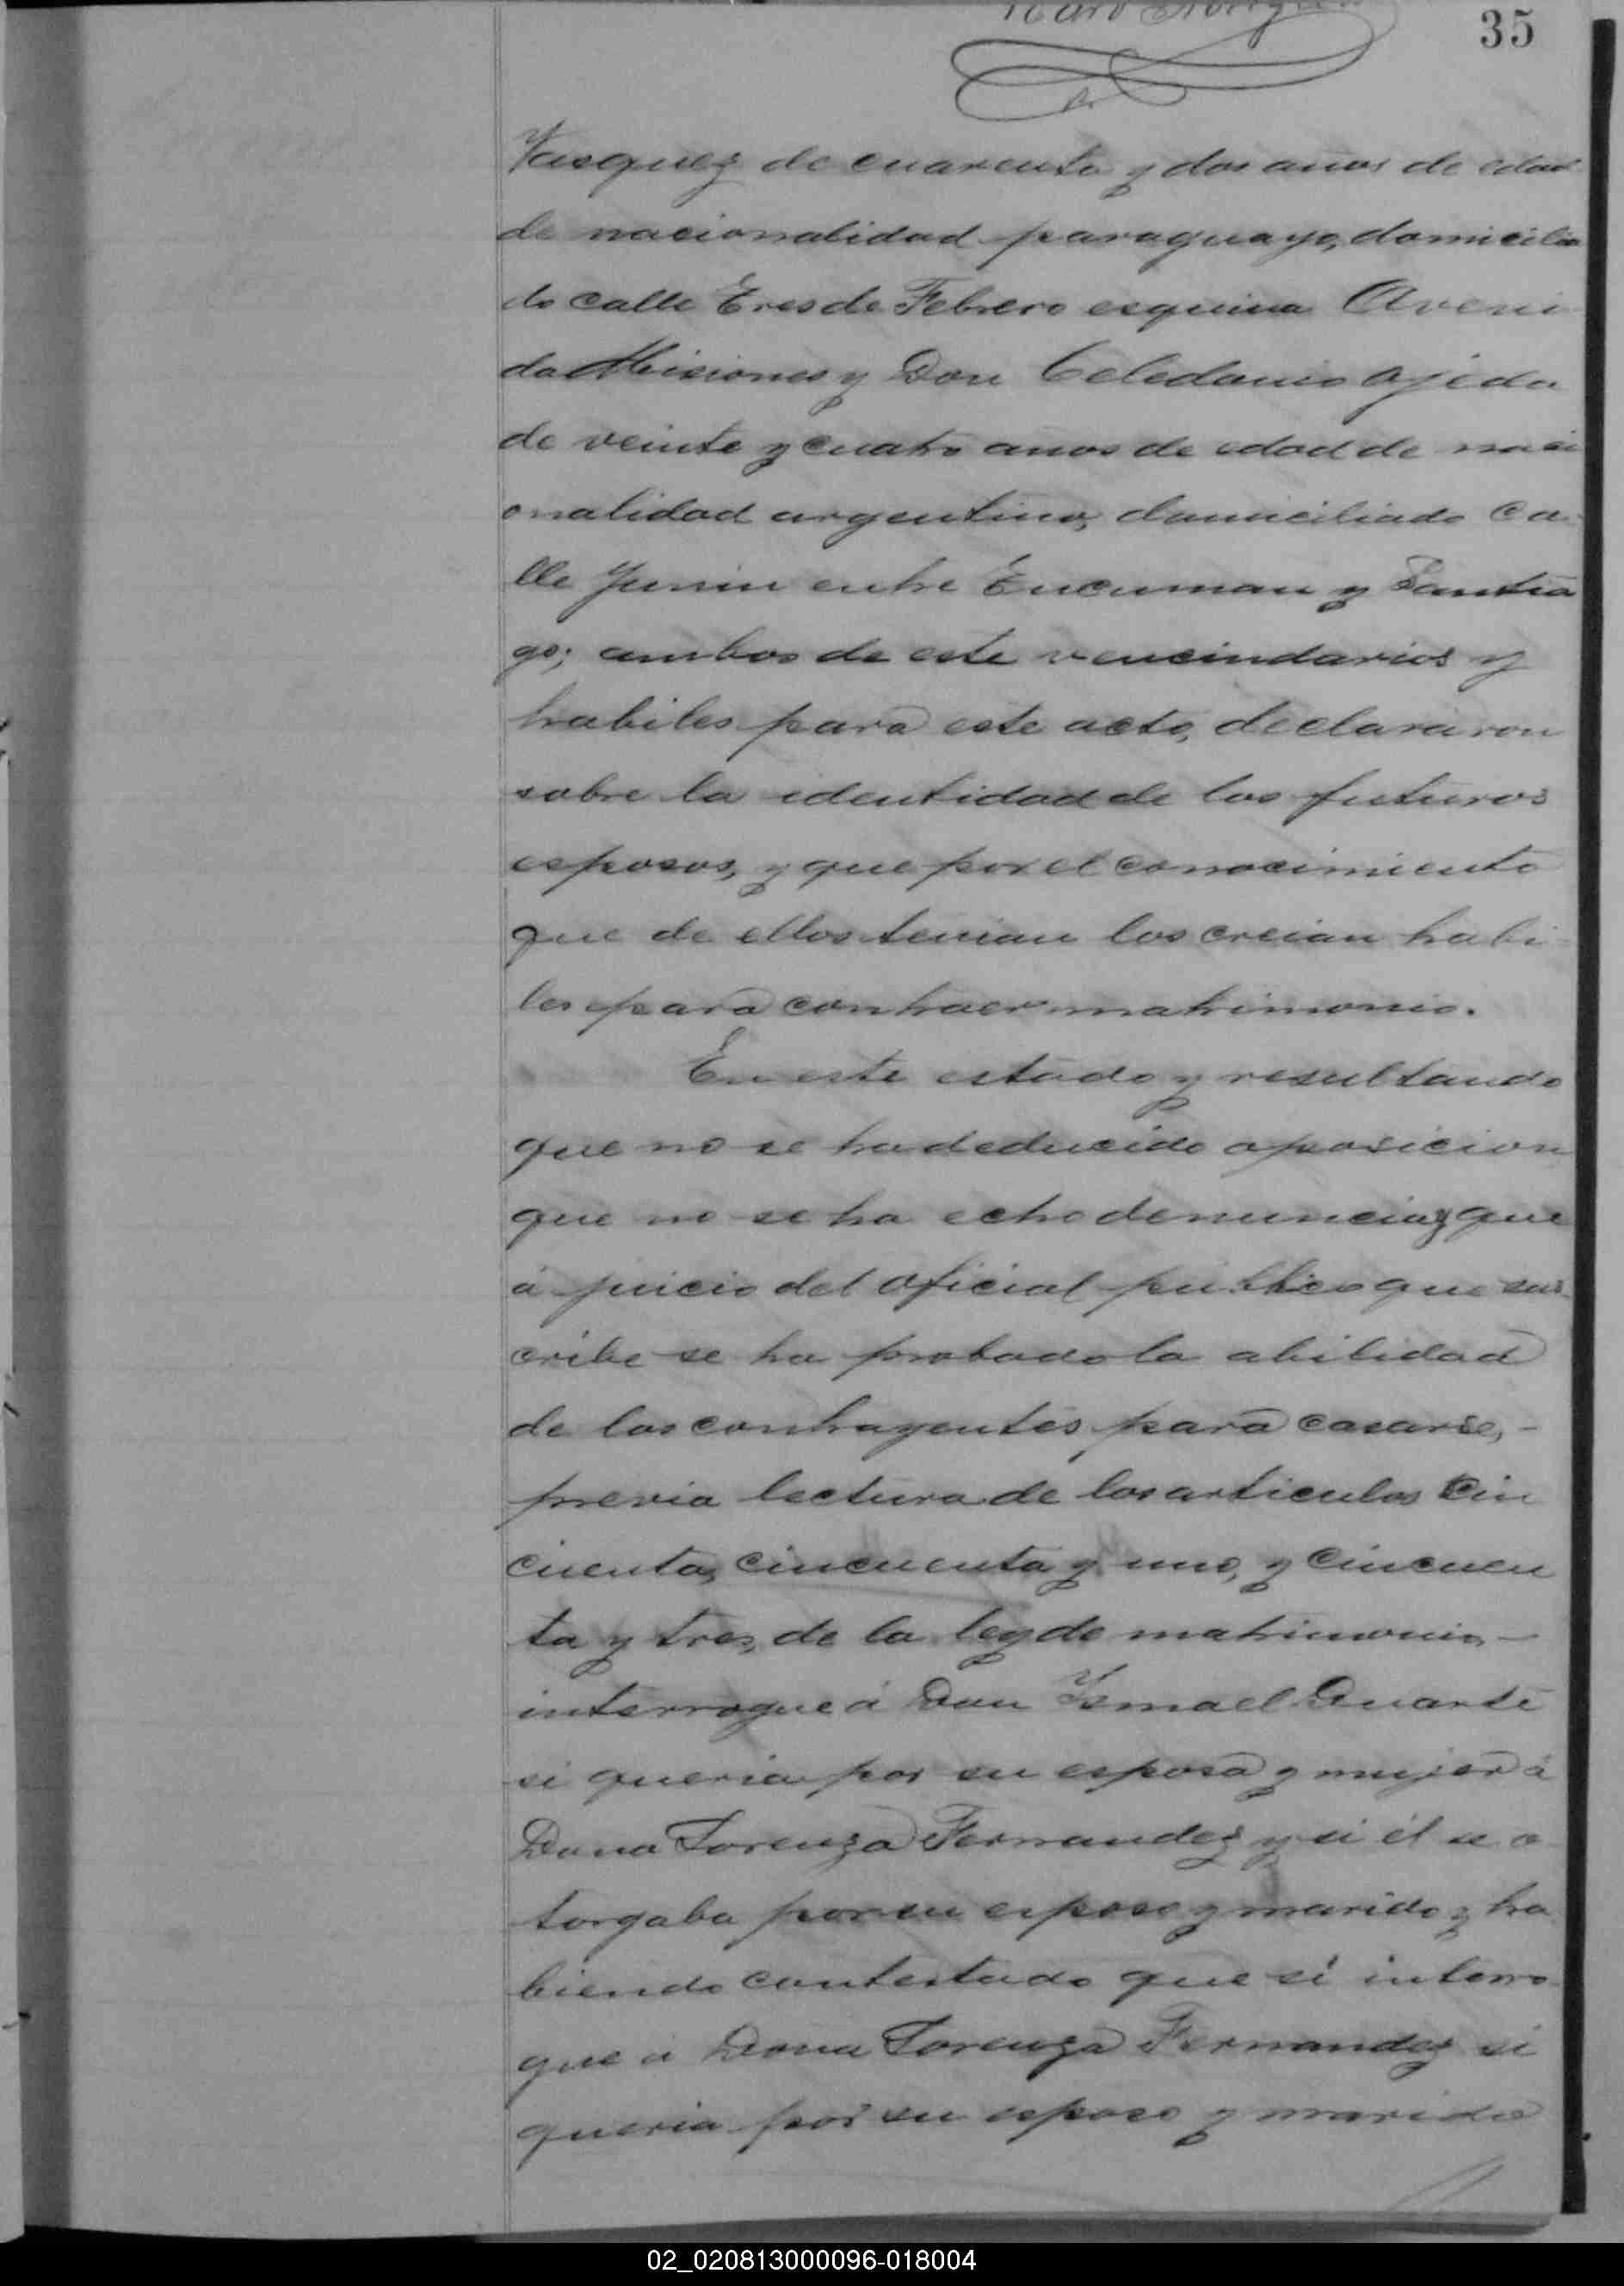 35
Vasquez de cuarenta y dos años de edad
de nacionalidad paraguayo, domicilia
do calle Tres de Febrero esquina Aveni
da Misiones y Don Celedonio Ojeda
de veinte y cuatro anos de edad de naci
onalidad argentino, domiciliado Ca
lle Junin entre Tucuman y Santia
go; ambos de este vencindarios y
habiles para este acto, declararon
sobre la identidad de los futuros
esposos, y que por el conocimiento
que de ellos tenian los creian habi=
les para contraer matrimonio.
En este estado y resultando
que no se ha deducido oposicion
que no se ha echo denuncia y que
á juicio del oficial publico que sus
cribe se ha probado la abilidad
de los contrayentes para casarse, -
previa lectura de los articulos Cin
cuenta, cincuenta y uno, y cincuen
ta y tres, de la ley de matrimonio -
interrogue á Don Ismael Duarte
si queria por su esposa y mujer á
Dona Lorenza Fernandez y si él se o
torgaba por su esposo y marido y ha
biendo contestado que si interro
gue á Dona Lorenza Fernandez si
queria por su esposo y marido
02_020813000096-018004